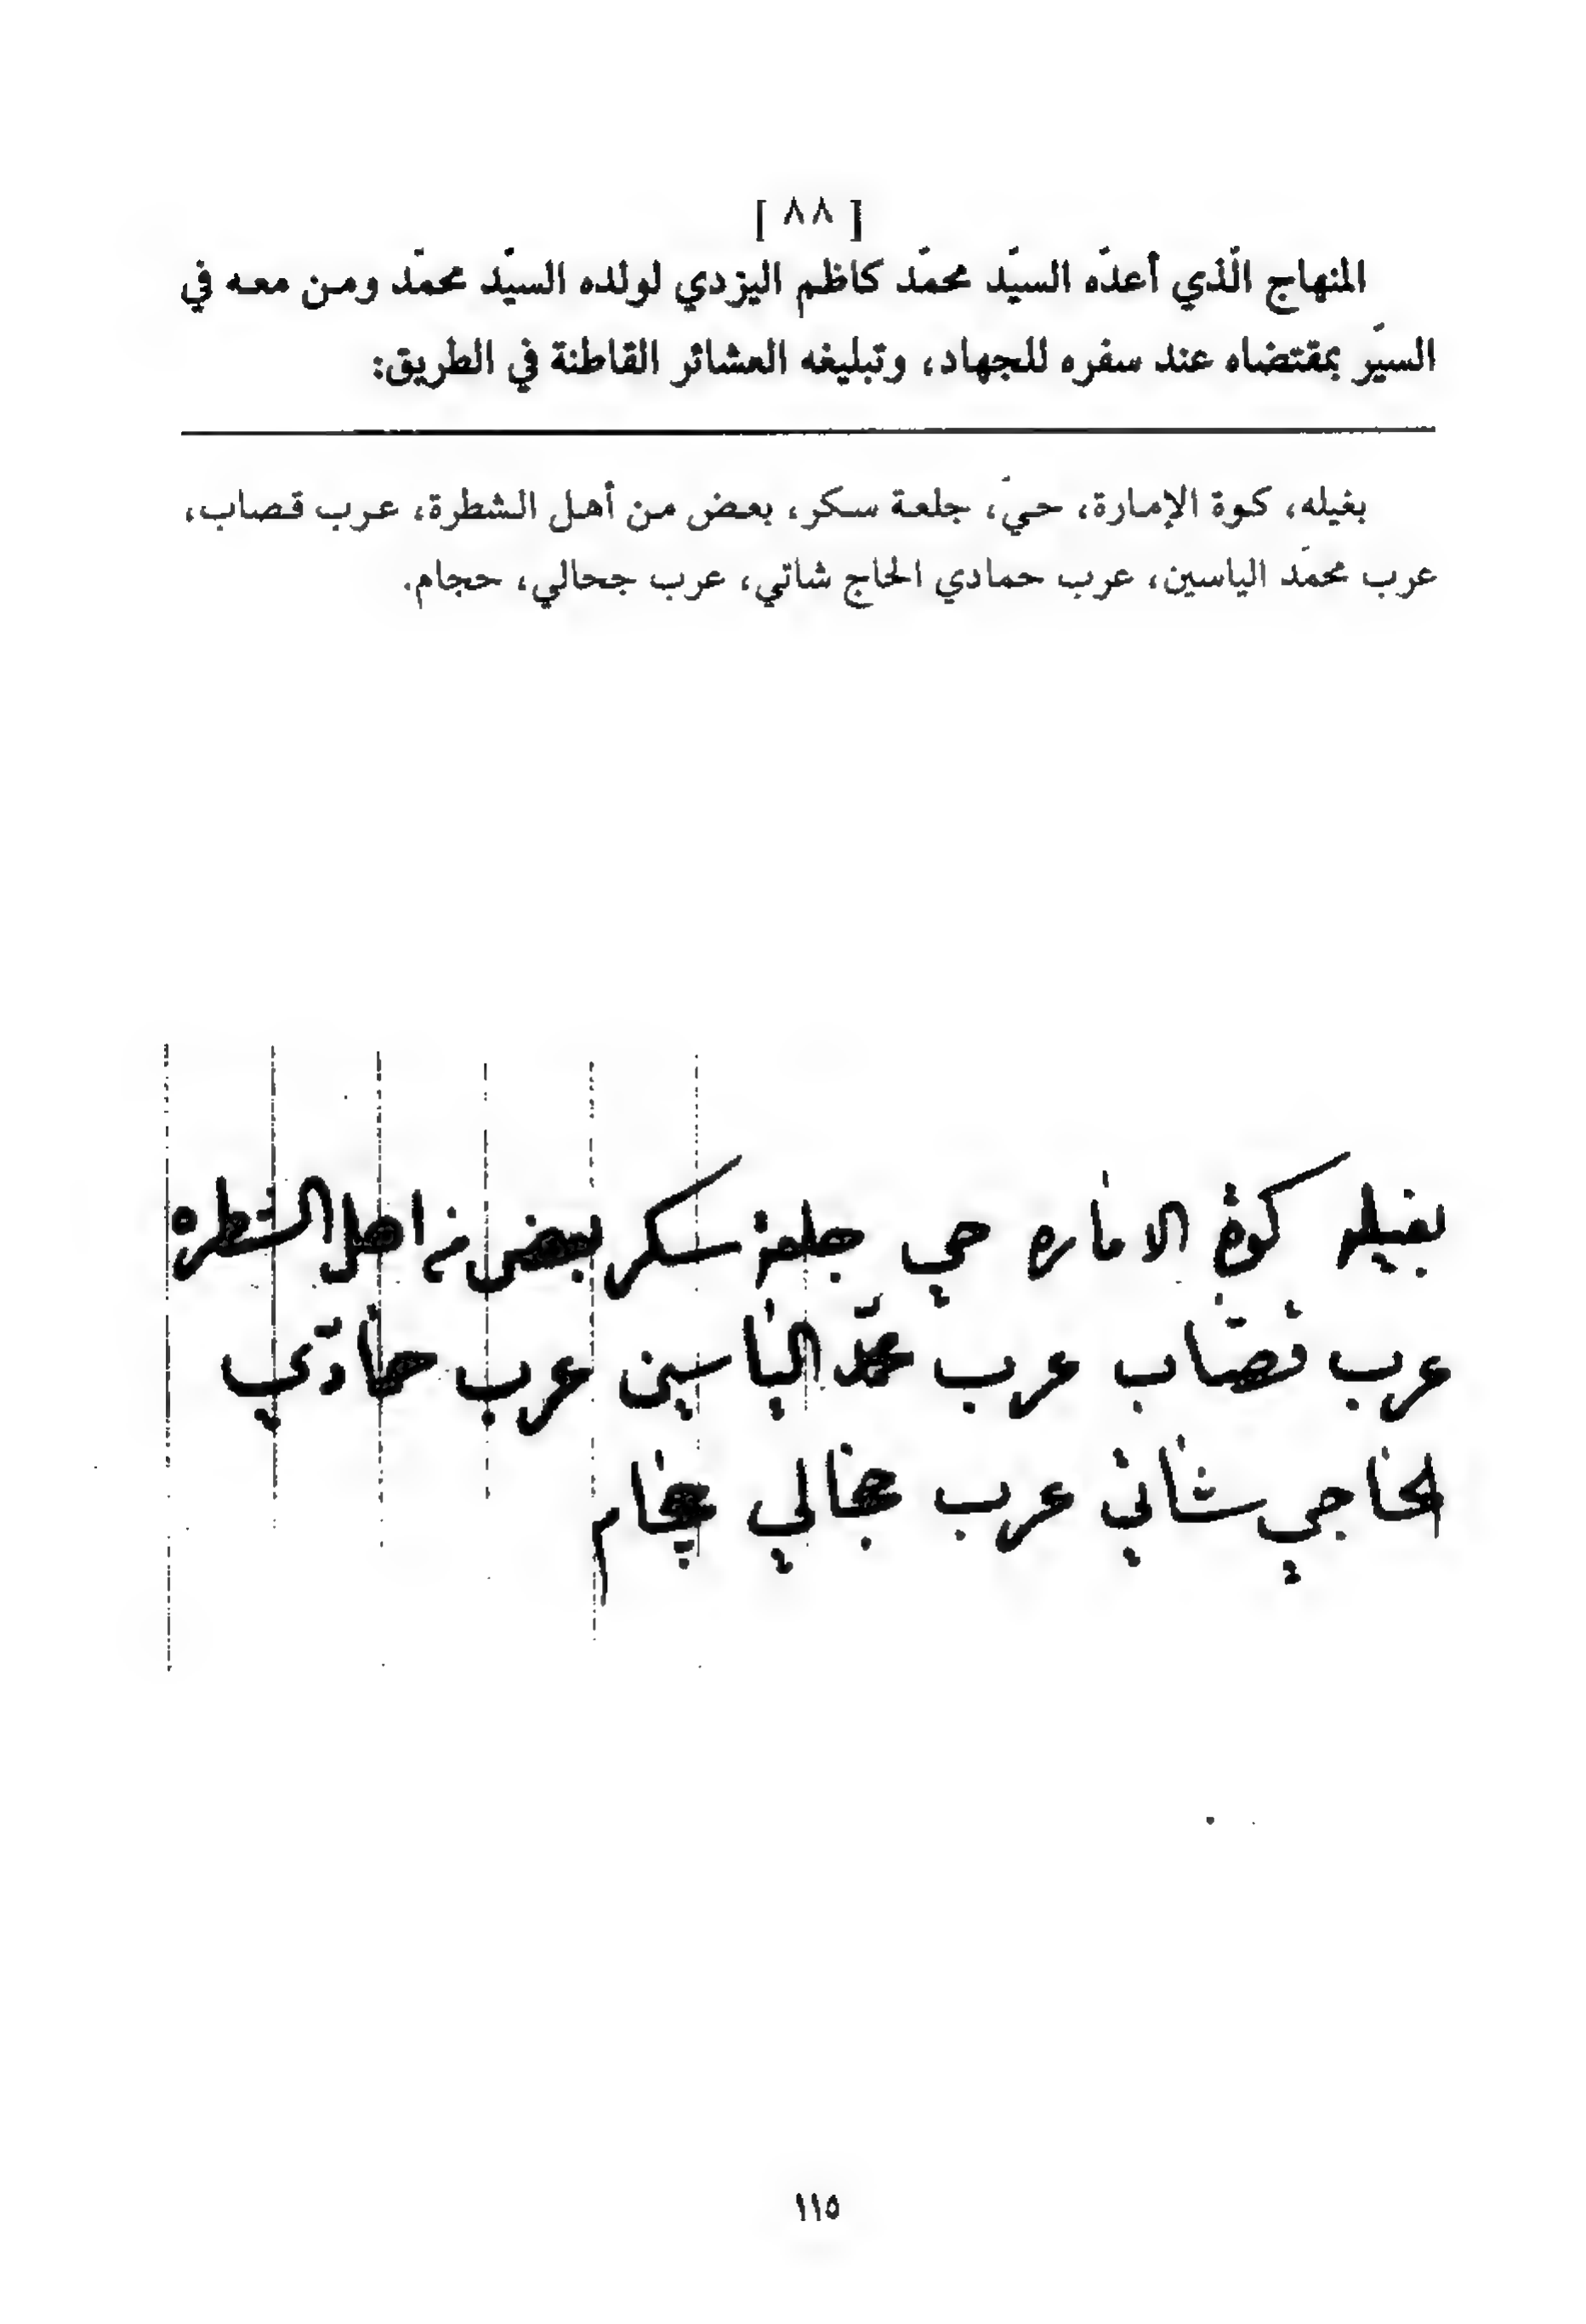 [ ٨٨ ]
المنهاج الّذي أعدّه السيّد محمّد كاظم اليزدي لولده السيّد محمّد ومن معه في
السيّر بمقتضاه عند سفره للجهاد، وتبليغه العشائر القاطنة في الطريق:
بغيله، كوة الإمارة، حيّ، جلعة سكر، بعض من أهل الشطرة، عرب قصاب،
عرب محمّد الياسين، عرب حمادي الحاج شاتي، عرب جحالي، حجام.
بغيله كوة الاماره حي جلعة سكر بعض من اهل الشطره
عرب قصّاب عرب محمّد الياسين عرب حمادي
الحاجي شاتي عرب جحالي حچام
١١٥